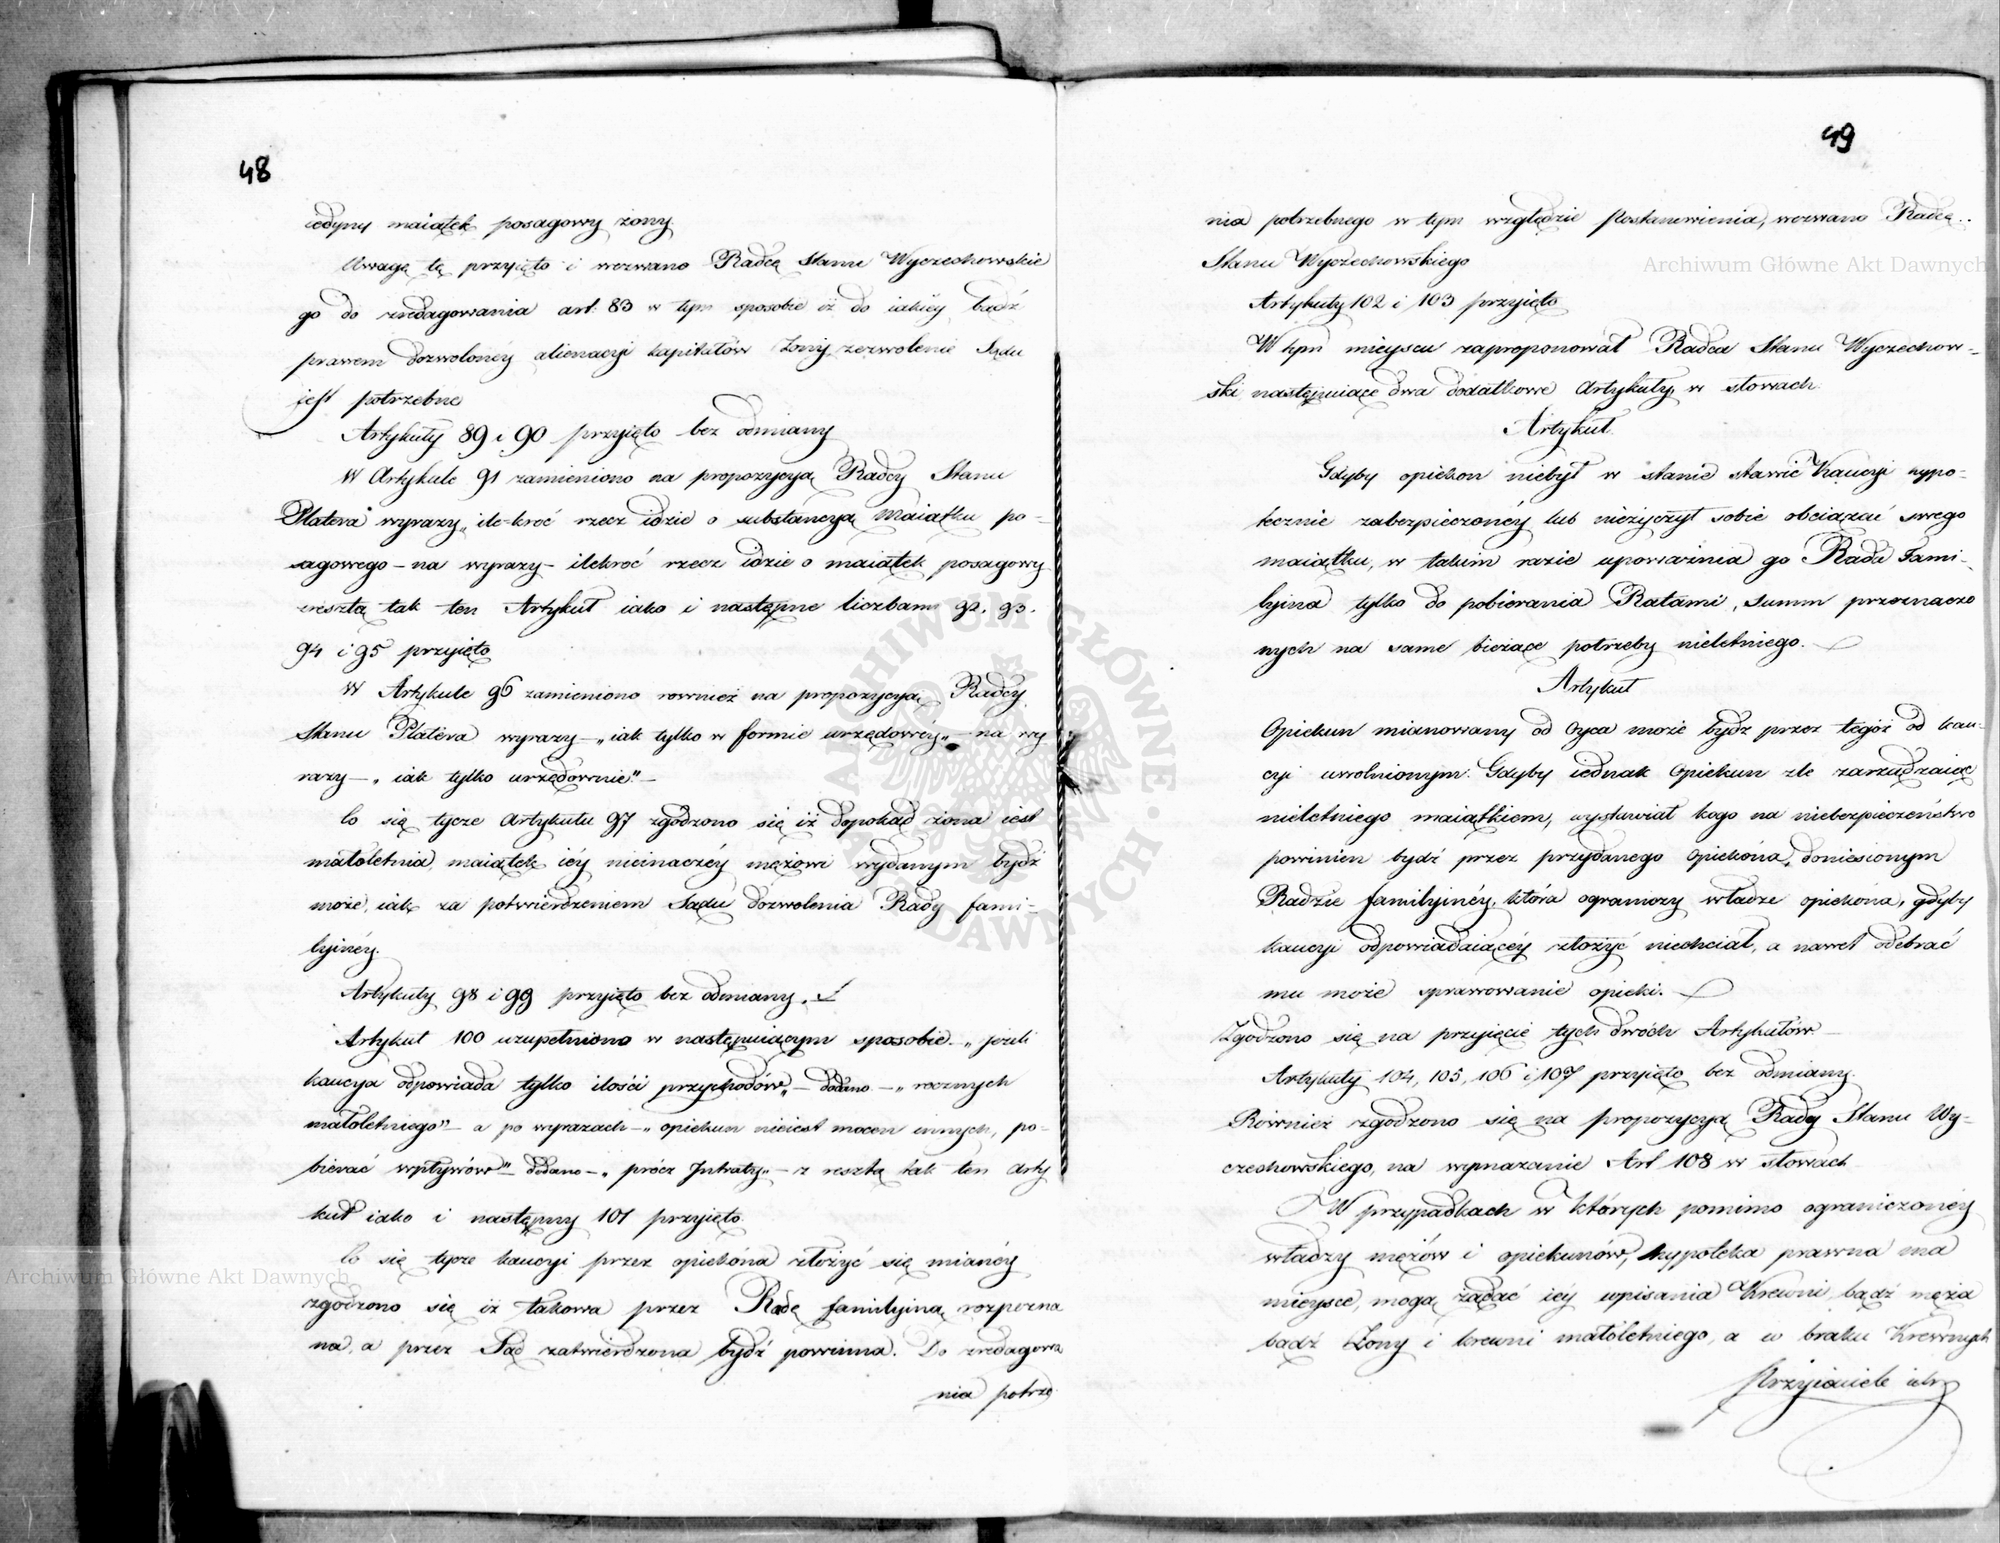 48
iedyny maiątek posagowy żony
Uwagę tę przyięto i wezwano Radcę Stanu Wyczechowskie
go do zredagowania art: 83 w tym sposobie iż do iakiéy bądź
prawem dozwoloney alienacyi kapitałów Żony zezwolenie Sądu
iest potrzebne
Artykuły 89 i 90 przyięto bez odmiany
W Artykule 91 zamieniono na propozycyą Radcy Stanu
Platera wyrazy „ile-kroć rzecz idzie o substancyą Maiątku po-
sagowego – na wyrazy – ilekroć rzecz idzie o maiątek posagowy
zresztą tak ten Artykuł iako i następne liczbami 92. 93.
94 i 95 przyięto
W Artykule 96 zamieniono rownież na propozycyą Radcy
Stanu Platera wyrazy – „iak tylko w formie urzędowéy„ – na wy
razy – „ iak tylko urzędownie" –
Co się tycze Artykułu 97 zgodzono się iż dopokąd żona iest
małoletnia, maiątek iéy nieinaczéy mężowi wydanym bydź
może, iak za potwierdzeniem Sądu dozwolenia Rady fami-
lyinéy.
Artykuły 98 i 99 przyięto bez odmiany.
Artykuł 100 uzupełniono w następuiącym sposobie. „ jeżeli
kaucya odpowiada tylko ilości przychodów„ – dodano – „ rocznych
małoletniego" – a po wyrazach – „ opiekun nieiest mocen innych, po-
bierać wpływów" – dodano – „ prócz Intraty„ – z resztą tak ten Arty
kuł iako i następny 101 przyięto
Co się tycze kaucyi przez opiekóna złożyć się maiącéy
zgodzono się iż takowa przez Radę familyiną rozpozna
na, a przez Sąd zatwierdzona bydź powinna. Do zredagowa
nia potrze
49
nia potrzebnego w tym względzie Postanowienia, wezwano Radcę
Stanu Wyczechowskiego
Artykuły 102 i 103 przyięto
W tym mieyscu zaproponował Radca Stanu Wyczechow-
ski następuiące dwa dodatkowe Artykuły w słowach
Artykuł.
Gdyby opiekon niebył w stanie stawić Kaucyi hypo-
tecznie zabezpieczonéy lub nieżyczył sobie obciążać swego
maiątku, w takim razie upoważnia go Rada Fami-
lyina tylko do pobierania Ratami, Summ przeznaczo
nych na same bieżące potrzeby nieletniego.
Artykuł
Opiekun mianowany od Oyca może bydz przez tegóż od kau-
cyi uwolnionym. Gdyby iednak Opiekun źle zarządzaiąc
nieletniego maiątkiem, wystawiał kogo na niebezpieczeństwo
powinien bydź przez przydanego Opiekóna, doniesionym
Radzie familyinéy, która ograniczy władze opiekóna, gdyby
kaucyi odpowiadaiącéy złożyć niechciał, a nawet odebrać
mu może sprawowanie opieki.
Zgodzono się na przyięcie tych dwóch Artykułów –
Artykuły 104, 105, 106 i 107 przyięto bez odmiany.
Rownież zgodzono się na propozycyą Radcy Stanu Wy-
czechowskiego, na wymazanie Art 108 w słowach
W przypadkach w których pomimo ograniczonéy
władzy mężów i opiekunów, hypoteka prawna ma
mieysce, mogą żądać iéy wpisania Krewni bądź męża
bądź Żony i krewni małoletniego, a w braku Krewnych
Przyiaciele ich